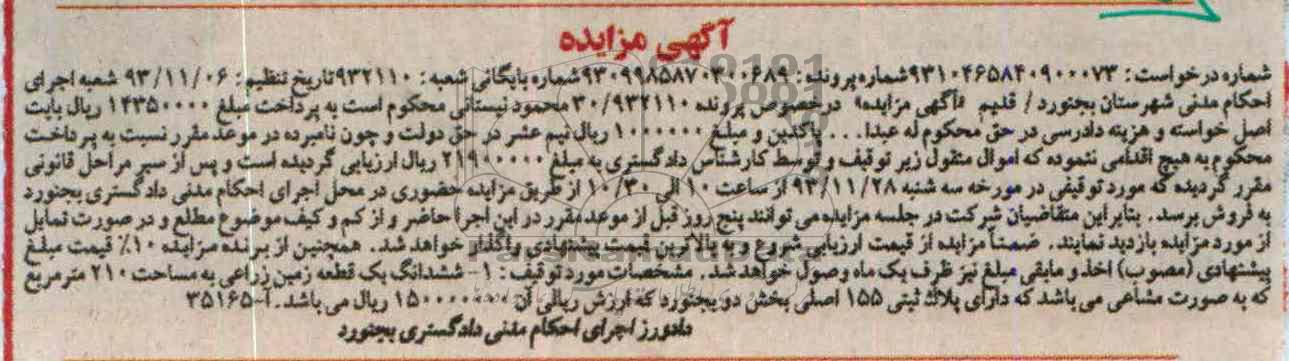 آگهی مزایده
شماره درخواست: ۹۳۱۰۴۶۵۸۴۰۹۰۰۰۷۳ شماره پرونده: ۹۳۰۹۹۸۵۸۷۰۴۰۰۶۸۹ شماره بایگانی شعبه: ۹۳۲۱۱۰ تاریخ تنظیم: ۹۳/۱۱/۰۶ شعبه اجرای
احکام مدنی شهرستان بجنورد / قدیم «آگهی مزایده» درخصوص پرونده ۳۰/۹۳۲۱۱۰ محمود نیستانی محکوم است به پرداخت مبلغ ۱۴۳۵۰۰۰۰ ریال بابت
اصل خواسته و هزینه دادرسی در حق محکوم له عبدا... پاکدین و مبلغ ۱۰۰۰۰۰۰ ریال نیم عشر در حق دولت و چون نامبرده در موعد مقرر نسبت به پرداخت
محکوم به هیچ اقدامی ننموده که اموال منقول زیر توقیف و توسط کارشناس دادگستری به مبلغ ۲۱۹۰۰۰۰۰ ریال ارزیابی گردیده است و پس از سیر مراحل قانونی
مقرر گردیده که مورد توقیفی در مورخه سه شنبه ۹۳/۱۱/۲۸ از ساعت ۱۰ الی ۱۰/۳۰ از طریق مزایده حضوری در محل اجرای احکام مدنی دادگستری بجنورد
به فروش برسد. بنابراین متقاضیان شرکت در جلسه مزایده می توانند پنج روز قبل از موعد مقرر در این اجرا حاضر و از کم و کیف موضوع مطلع و در صورت تمایل
از مورد مزایده بازدید نمایند. ضمناً مزایده از قیمت ارزیابی شروع و به بالاترین قیمت پیشنهادی واگذار خواهد شد. همچنین از برنده مزایده ۱۰٪ قیمت مبلغ
پیشنهادی (مصوب) اخذ و مابقی مبلغ نیز ظرف یک ماه وصول خواهد شد. مشخصات مورد توقیف: ۱- ششدانگ یک قطعه زمین زراعی به مساحت ۲۱۰ مترمربع
که به صورت مشاعی می باشد که دارای پلاک ثبتی ۱۵۵ اصلی بخش دو بجنورد که ارزش ریالی آن ۱۵۰۰۰۰۰۰ ریال می باشد. آ-۳۵۱۶۵
دادورز اجرای احکام مدنی دادگستری بجنورد